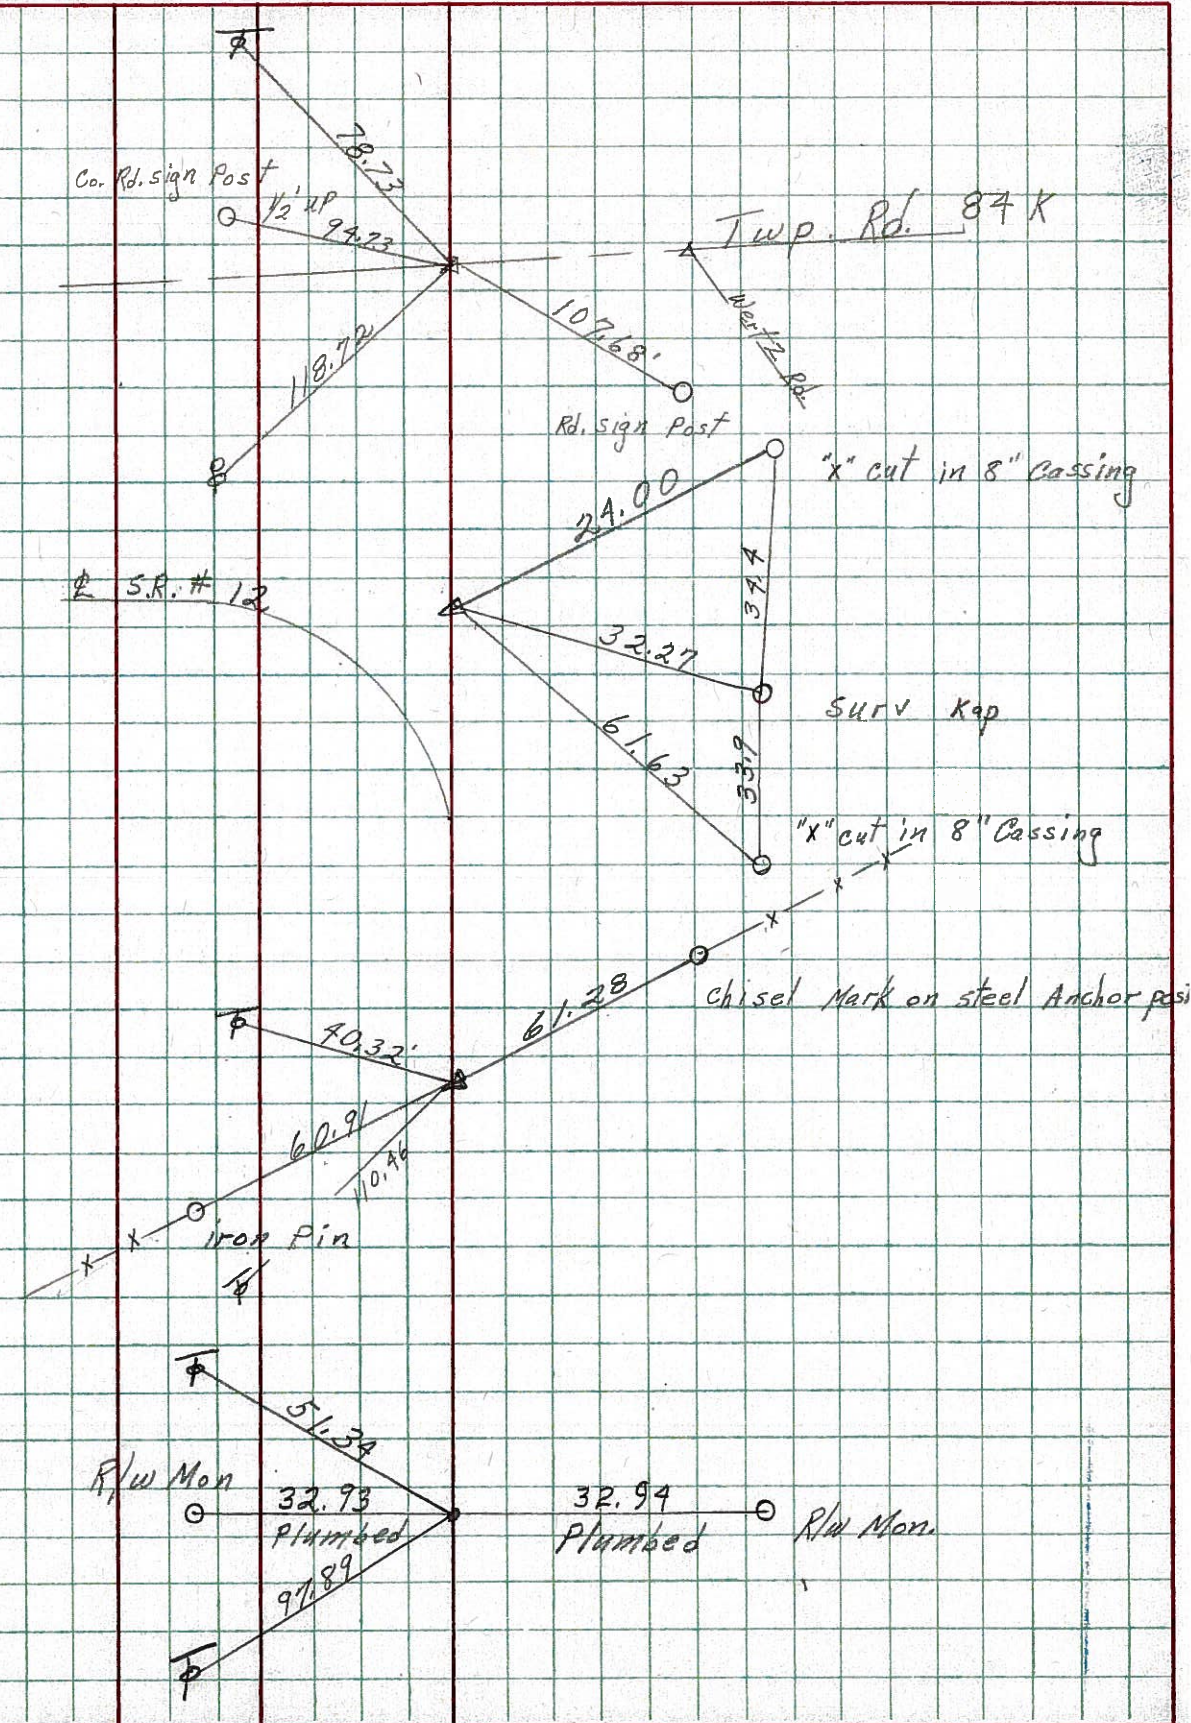 78.73
Co. Rd. sign Post
1/2' up
94.23
Twp. Rd. 84 K
Wertz Rd.
107.68'
118.72
Rd. sign Post
"X" cut in 8" Cassing
24.00
34.4
℄ S.R. # 12
32.27
Surv Kap
61.63
33.9
"X" cut in 8" Cassing
61.28
Chisel Mark on steel Anchor post
40.32'
60.91
110.46
iron Pin
51.34
R/w Mon
32.93
Plumbed
32.94
Plumbed
R/w Mon.
97.89